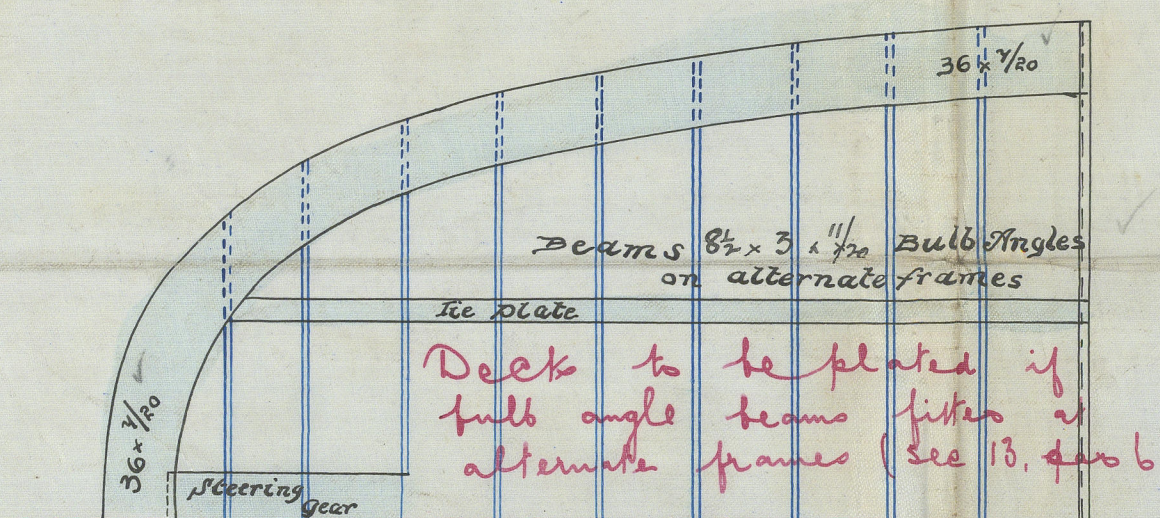 36 × 7/20
Beams 8½ × 3 × 11/20 Bulb Angles
on alternate frames
Tie plate
Deck to be plated if
bulb angle beams fitted at
alternate frames (see 13, 6
36 × 7/20
Steering
gear